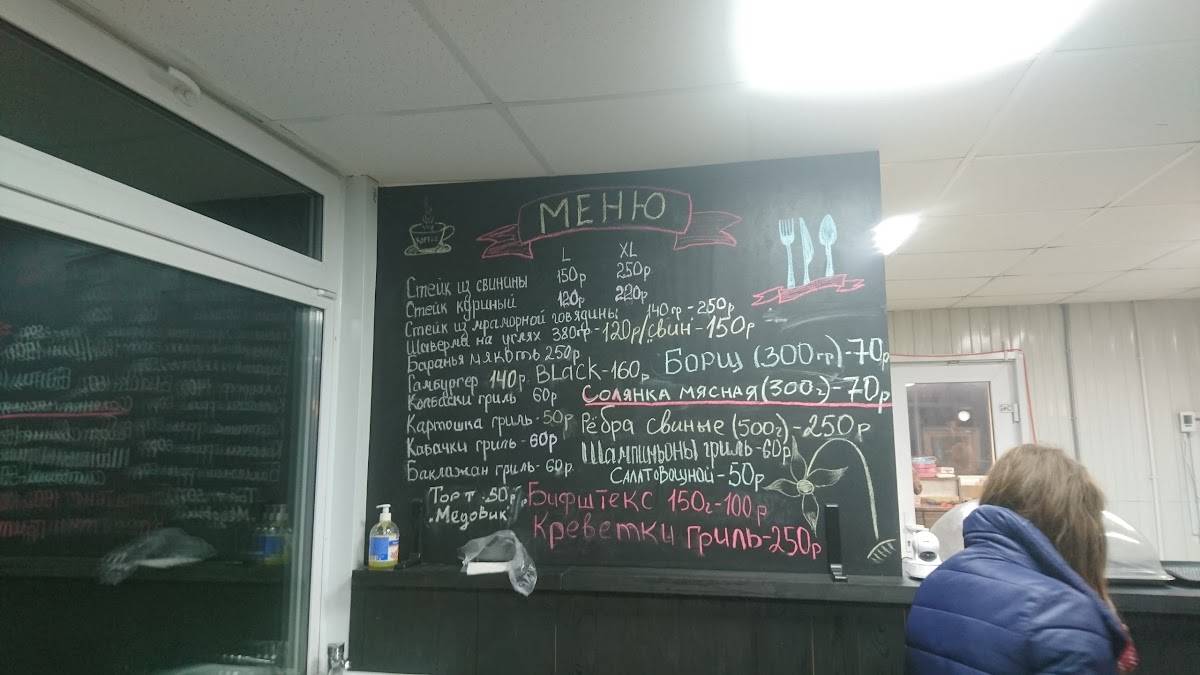 МЕНЮ
L XL
Стейк из свинины 150р 250р
Стейк куриный 120р 220р
Стейк из мраморной говядины 140гр-250р
Шаверма на углях 380гр-120р/свин-150р
Баранья мякоть 250р
Гамбургер 140р. BLACK-160р
Колбаски гриль 60р
Картошка гриль-50р
Кабачки гриль-60р
Баклажан гриль-60р.
Торт-50р
"Медовик"
Борщ (300гр)-70р
Солянка мясная(300г)-70р
Рёбра свиные (500г)-250р
Шампиньоны гриль-60р
Салат овощной-50р
Бифштекс 150г-100р
Креветки гриль-250р